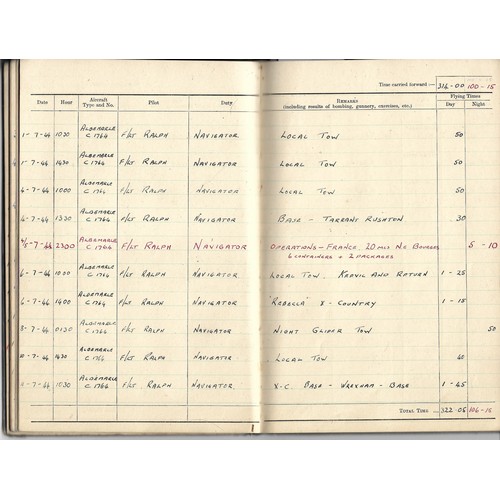 Time carried forward — 316-00 100-15
Date Hour Aircraft Type and No. Pilot Duty Remarks (including results of bombing, gunnery, exercises, etc.) Flying Times Day Night
1-7-44 1030 ALBEMARLE C 1764 F/LT RALPH NAVIGATOR LOCAL TOW 50
1430 ALBEMARLE C 1764 F/LT RALPH NAVIGATOR LOCAL TOW 50
4-7-44 1000 ALBEMARLE C 1764 F/LT RALPH NAVIGATOR LOCAL TOW 50
4-7-44 1330 ALBEMARLE C 1764 F/LT RALPH NAVIGATOR BASE — TARRANT RUSHTON 30
4/5-7-44 2300 ALBEMARLE C 1764 F/LT RALPH NAVIGATOR OPERATIONS — FRANCE. 20 MLS N.E. BOURGES 5-10
6 CONTAINERS + 2 PACKAGES
6-7-44 1000 ALBEMARLE C 1764 F/LT RALPH NAVIGATOR LOCAL TOW. KEEVIL AND RETURN 1-25
6-7-44 1400 ALBEMARLE C 1764 F/LT RALPH NAVIGATOR "REBECCA" X-COUNTRY 1-15
8-7-44 0130 ALBEMARLE C 1764 F/LT RALPH NAVIGATOR NIGHT GLIDER TOW 50
10-7-44 1430 ALBEMARLE C 1764 F/LT RALPH NAVIGATOR LOCAL TOW 40
-7-44 1030 ALBEMARLE C 1764 F/LT RALPH NAVIGATOR X-C. BASE — WREXHAM — BASE 1-45
Total Time ... 322-05 106-15